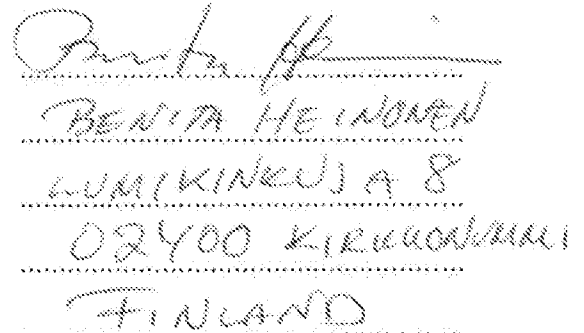 BENITA HEINONEN
LUMIKINKUJA 8
02400 KIRKKONUMMI
FINLAND